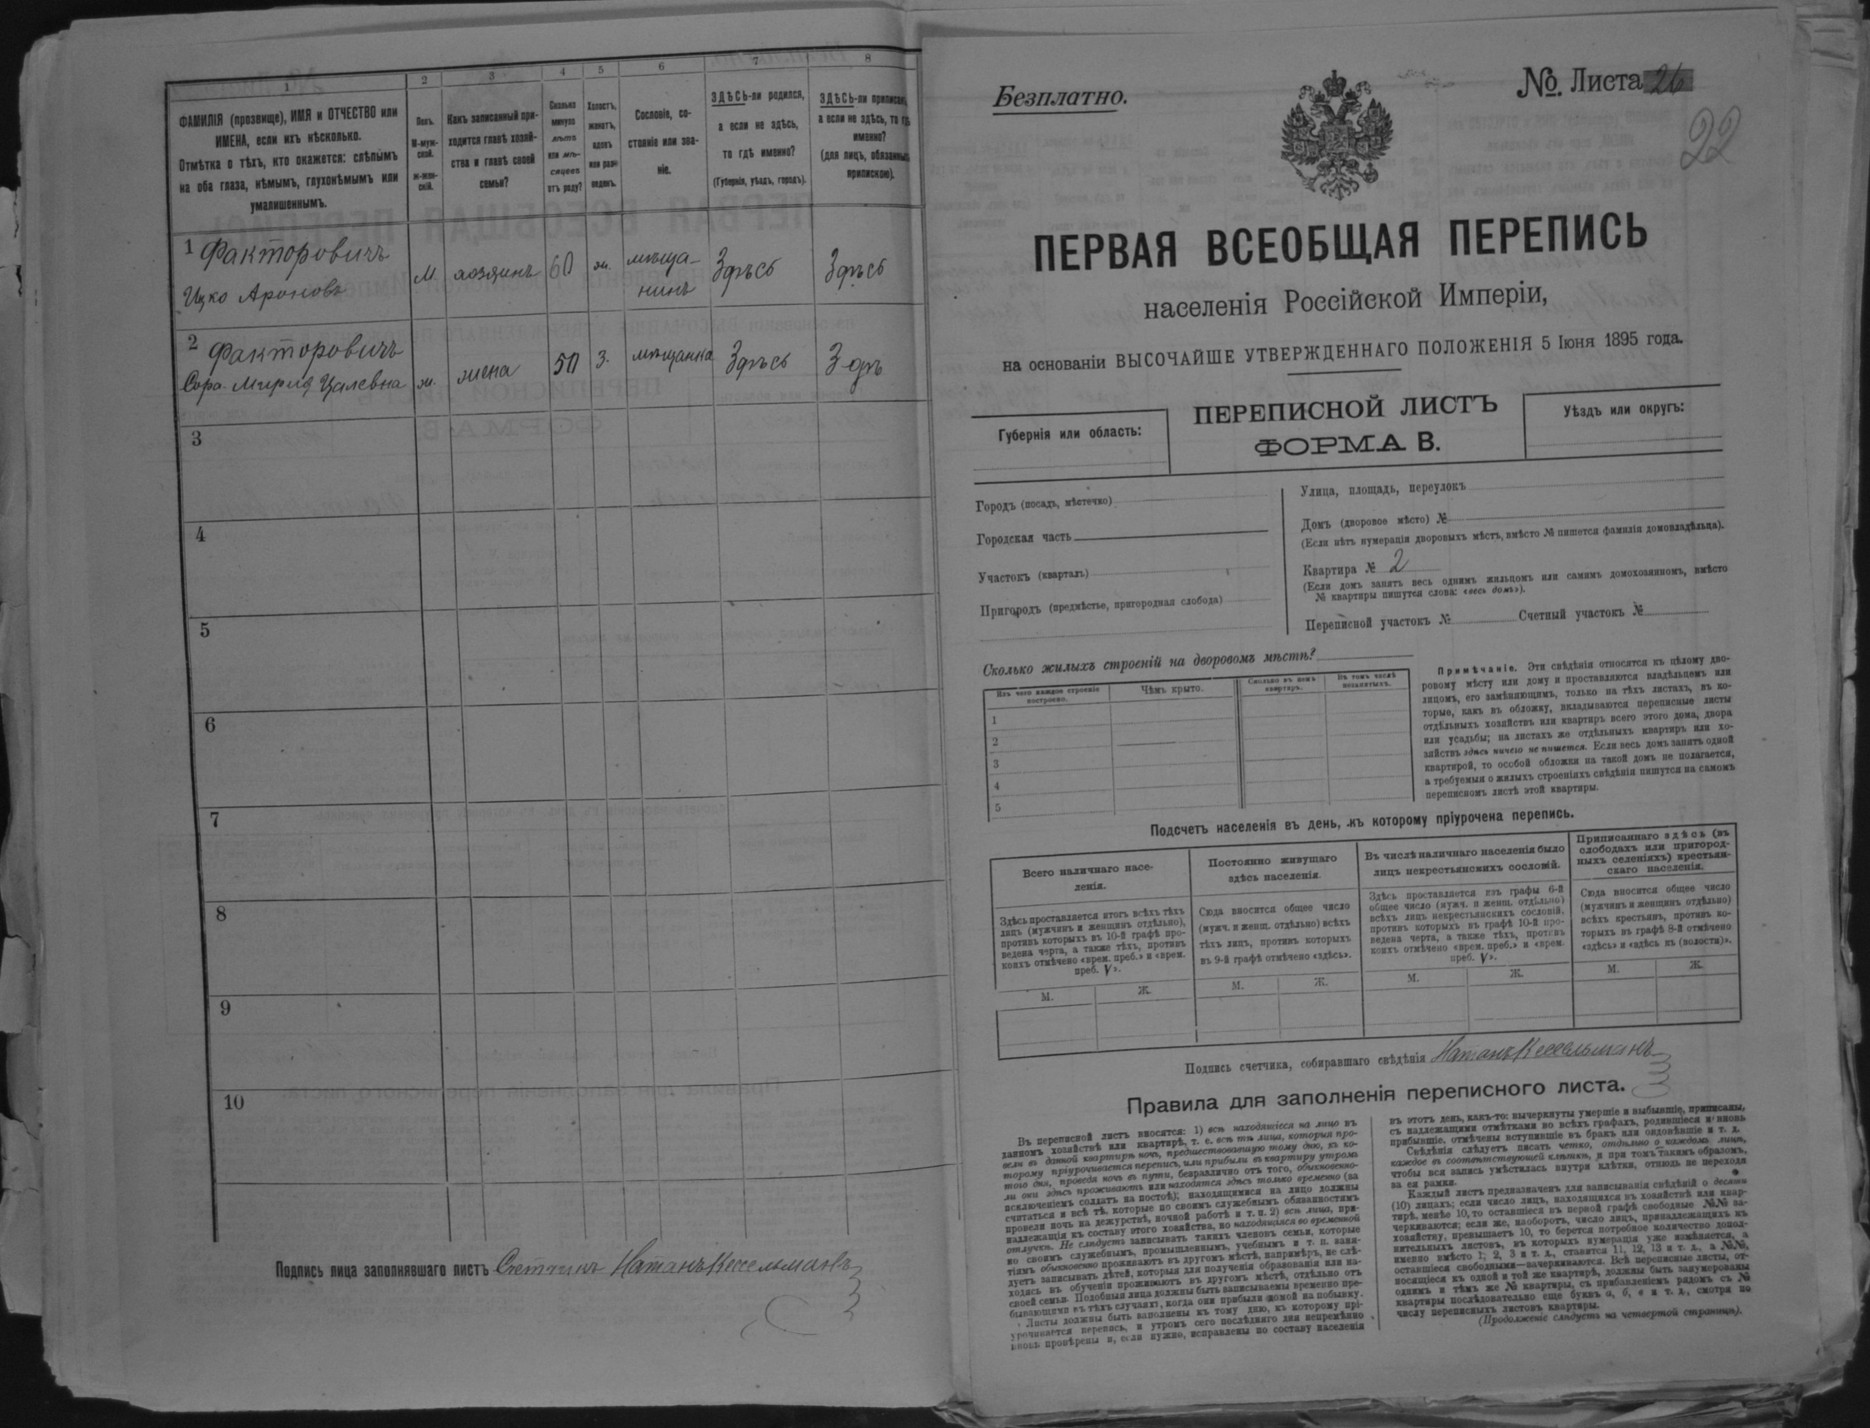 1
2
3
4
5
6
7
8
ФАМИЛІЯ (прозвище), ИМЯ и ОТЧЕСТВО или
ИМЕНА, если ихъ нѣсколько.
Отмѣтка о тѣхъ, кто окажется: слѣпымъ
на оба глаза, нѣмымъ, глухонѣмымъ или
умалишеннымъ.
Полъ.
М-муж-
ской.
ж-жен-
скій.
Какъ записанный при-
ходится главѣ хозяй-
ства и главѣ своей
семьи?
Сколько
минуло
лѣтъ
или мѣ-
сяцевъ
отъ роду?
Холостъ,
женатъ,
вдовъ
или раз-
веденъ.
Сословіе, со-
стояніе или зва-
ніе.
ЗДѢСЬ-ли родился,
а если не здѣсь,
то гдѣ именно?
(Губернія, уѣздъ, городъ).
ЗДѢСЬ-ли приписанъ,
а если не здѣсь, то гдѣ
именно?
(для лицъ, обязанныхъ
припиской).
1 Факторовичъ
Ицко Ароновъ
М.
хозяинъ
60
ж.
мѣща-
нинъ
Здѣсь
Здѣсь
2 Факторовичъ
Сора-Мирля Цалевна
ж.
жена
50
З.
мѣщанка
Здѣсь
Здѣ
3
4
5
6
7
8
9
10
Подпись лица заполнявшаго листъ Счетчикъ Натанъ Кесельманъ
Безплатно.
№ Листа 26
22
ПЕРВАЯ ВСЕОБЩАЯ ПЕРЕПИСЬ
населенія Россійской Имперіи,
на основаніи ВЫСОЧАЙШЕ УТВЕРЖДЕННАГО ПОЛОЖЕНІЯ 5 Іюня 1895 года.
Губернія или область:
ПЕРЕПИСНОЙ ЛИСТЪ
ФОРМА В.
Уѣздъ или округъ:
Городъ (посадъ, мѣстечко)
Городская часть
Участокъ (кварталъ)
Пригородъ (предмѣстье, пригородная слобода)
Улица, площадь, переулокъ
Домъ (дворовое мѣсто) №
(Если нѣтъ нумераціи дворовыхъ мѣстъ, вмѣсто № пишется фамилія домовладѣльца).
Квартира № 2
(Если домъ занятъ весь однимъ жильцомъ или самимъ домохозяиномъ, вмѣсто
№ квартиры пишутся слова: «весь домъ»).
Переписной участокъ № Счетный участокъ №
Сколько жилыхъ строеній на дворовомъ мѣстѣ?
Изъ чего каждое строеніе
построено.
Чѣмъ крыто.
Сколько въ немъ
квартиръ.
Въ томъ числѣ
незанятыхъ.
1
2
3
4
5
Примѣчаніе. Эти свѣдѣнія относятся къ цѣлому дво-
ровому мѣсту или дому и проставляются владѣльцемъ или
лицомъ, его замѣняющимъ, только на тѣхъ листахъ, въ ко-
торые, какъ въ обложку, вкладываются переписные листы
отдѣльныхъ хозяйствъ или квартиръ всего этого дома, двора
или усадьбы; на листахъ же отдѣльныхъ квартиръ или хо-
зяйствъ здѣсь ничего не пишется. Если весь домъ занятъ одной
квартирой, то особой обложки на такой домъ не полагается,
а требуемыя о жилыхъ строеніяхъ свѣдѣнія пишутся на самомъ
переписномъ листѣ этой квартиры.
Подсчетъ населенія въ день, къ которому пріурочена перепись.
Всего наличнаго насе-
ленія.
Постоянно живущаго
здѣсь населенія.
Въ числѣ наличнаго населенія было
лицъ некрестьянскихъ сословій.
Приписаннаго здѣсь (въ
слободахъ или пригород-
ныхъ селеніяхъ) крестьян-
скаго населенія.
Здѣсь проставляется итогъ всѣхъ тѣхъ
лицъ (мужчинъ и женщинъ отдѣльно),
противъ которыхъ въ 10-й графѣ про-
ведена черта, а также тѣхъ, противъ
коихъ отмѣчено «врем. преб.» и «врем.
преб. V».
Сюда вносится общее число
(мужч. и женщ. отдѣльно) всѣхъ
тѣхъ лицъ, противъ которыхъ
въ 9-й графѣ отмѣчено «здѣсь».
Здѣсь проставляется изъ графы 6-й
общее число (мужч. и женщ. отдѣльно)
всѣхъ лицъ некрестьянскихъ сословій,
противъ которыхъ въ графѣ 10-й про-
ведена черта, а также тѣхъ, противъ
коихъ отмѣчено «врем. преб.» и «врем.
преб. V».
Сюда вносится общее число
(мужчинъ и женщинъ отдѣльно)
всѣхъ крестьянъ, противъ ко-
торыхъ въ графѣ 8-й отмѣчено
«здѣсь» и «здѣсь въ (волости)».
М.
Ж.
М.
Ж.
М.
Ж.
М.
Ж.
Подпись счетчика, собиравшаго свѣдѣнія Натанъ Кесельманъ
Правила для заполненія переписного листа.
Въ переписной листъ вносятся: 1) всѣ находящіеся на лицо въ
данномъ хозяйствѣ или квартирѣ, т. е. всѣ тѣ лица, которыя про-
вели въ данной квартирѣ ночь, предшествовавшую тому дню, къ ко-
торому пріурочивается перепись, или прибыли въ квартиру утромъ
того дня, проведя ночь въ пути, безразлично отъ того, обыкновенно-
ли они здѣсь проживаютъ или находятся здѣсь только временно (за
исключеніемъ солдатъ на постоѣ); находящимися на лицо должны
считаться и всѣ тѣ, которые по своимъ служебнымъ обязанностямъ
провели ночь на дежурствѣ, ночной работѣ и т. п. 2) всѣ лица, при-
надлежащія къ составу этого хозяйства, но находящіяся во временной
отлучкѣ. Не слѣдуетъ записывать такихъ членовъ семьи, которые
по своимъ служебнымъ, промышленнымъ, учебнымъ и т. п. заня-
тіямъ обыкновенно проживаютъ въ другомъ мѣстѣ, напримѣръ, не слѣ-
дуетъ записывать дѣтей, которыя для полученія образованія или на-
ходясь въ обученіи проживаютъ въ другомъ мѣстѣ, отдѣльно отъ
своей семьи. Подобныя лица должны быть записываемы временно пре-
бывающими въ тѣхъ случаяхъ, когда они прибыли домой на побывку.
Листы должны быть заполнены къ тому дню, къ которому прі-
урочивается перепись, и утромъ сего послѣдняго дня непремѣнно
вновь провѣрены и, если нужно, исправлены по составу населенія
въ этотъ день, какъ-то: вычеркнуты умершіе и выбывшіе, приписаны,
съ надлежащими отмѣтками во всѣхъ графахъ, родившіеся и вновь
прибывшіе, отмѣчены вступившіе въ бракъ или овдовѣвшіе и т. д.
Свѣдѣнія слѣдуетъ писать четко, отдѣльно о каждомъ лицѣ,
каждое въ соотвѣтствующей клѣткѣ, и при томъ такимъ образомъ,
чтобы вся запись умѣстилась внутри клѣтки, отнюдь не переходя
за ея рамки.
Каждый листъ предназначенъ для записыванія свѣдѣній о десяти
(10) лицахъ; если число лицъ, находящихся въ хозяйствѣ или квар-
тирѣ, менѣе 10, то оставшіеся въ первой графѣ свободные №№ за-
черкиваются; если же, наоборотъ, число лицъ, принадлежащихъ къ
хозяйству, превышаетъ 10, то берется потребное количество допол-
нительныхъ листовъ, въ которыхъ нумерація уже измѣняется, а
именно вмѣсто 1, 2, 3 и т. д., ставится 11, 12, 13 и т. д., а №№,
оставшіеся свободными—зачеркиваются. Всѣ переписные листы, от-
носящіеся къ одной и той же квартирѣ, должны быть занумерованы
однимъ и тѣмъ же № квартиры, съ прибавленіемъ рядомъ съ №
квартиры послѣдовательно еще буквъ а, б, в и т. д., смотря по
числу переписныхъ листовъ квартиры.
(Продолженіе слѣдуетъ на четвертой страницѣ).